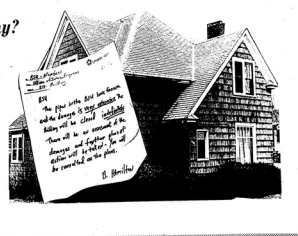 y?
BSU
The pipes in the BSU have frozen
and the damage is very extensive. The
Building will be closed indefinitely.
There will be an assessment of the
damages and further plans of
action will be taken. You will
be consulted on the plans.
B. Hamilton